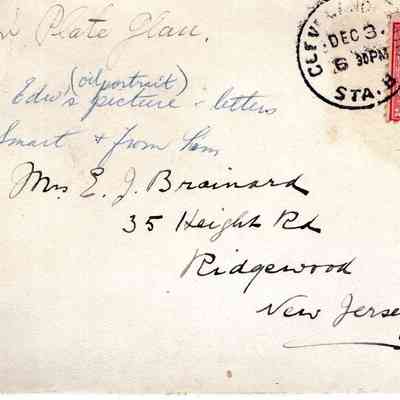 Plate Glass.
(oil portrait)
Edw's picture & letters
Smart & from Sam
CLEVELAND
DEC 3.
6 30PM
STA. B
Mrs E. J. Brainard
35 Height Rd
Ridgewood
New Jerse